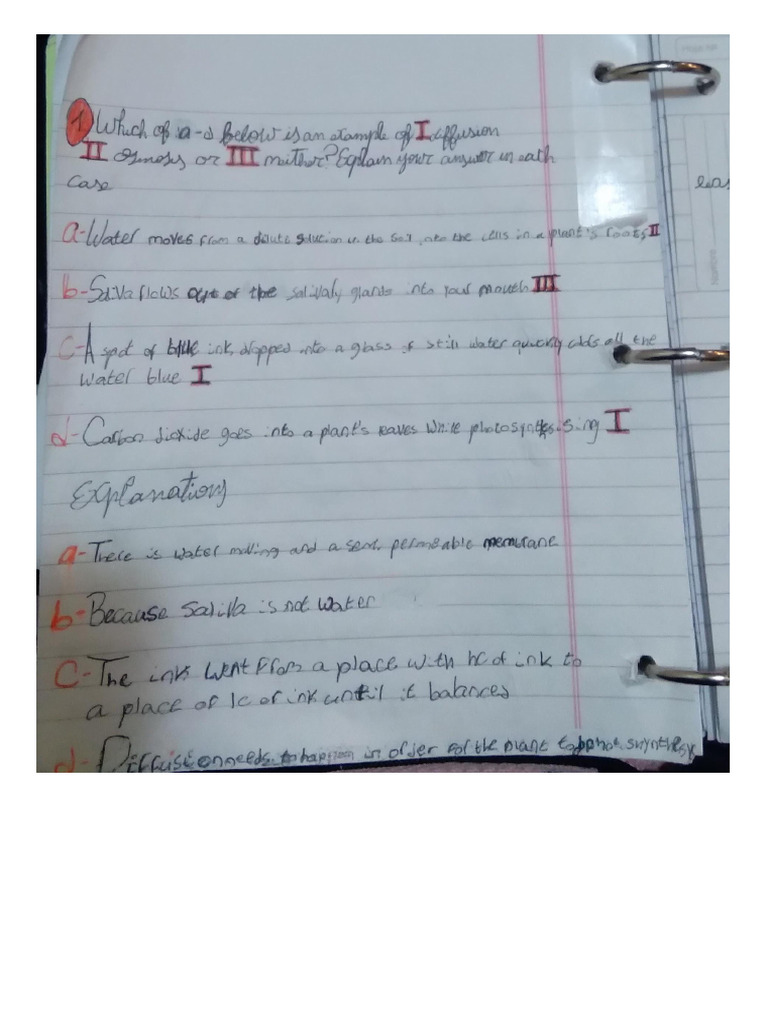 1) Which of a-d below is an example of I diffusion
II osmosis or III neither? Explain your answer in each
case
a- Water moves from a dilute solution in the soil, into the cells in a plant's roots II
b- Saliva flows out of the salivaly glands into your mouth III
c- A spot of blue ink, dropped into a glass of still water quickly adds all the
water blue I
d- Carbon dioxide goes into a plant's leaves while photosynthesising I
Explanation
a- There is water moving and a semi permeable membrane
b- Because Saliva is not water
C- The ink went from a place with hc of ink to
a place of lc of ink until it balances
d- Diffusion needs to happen in order for the plant to